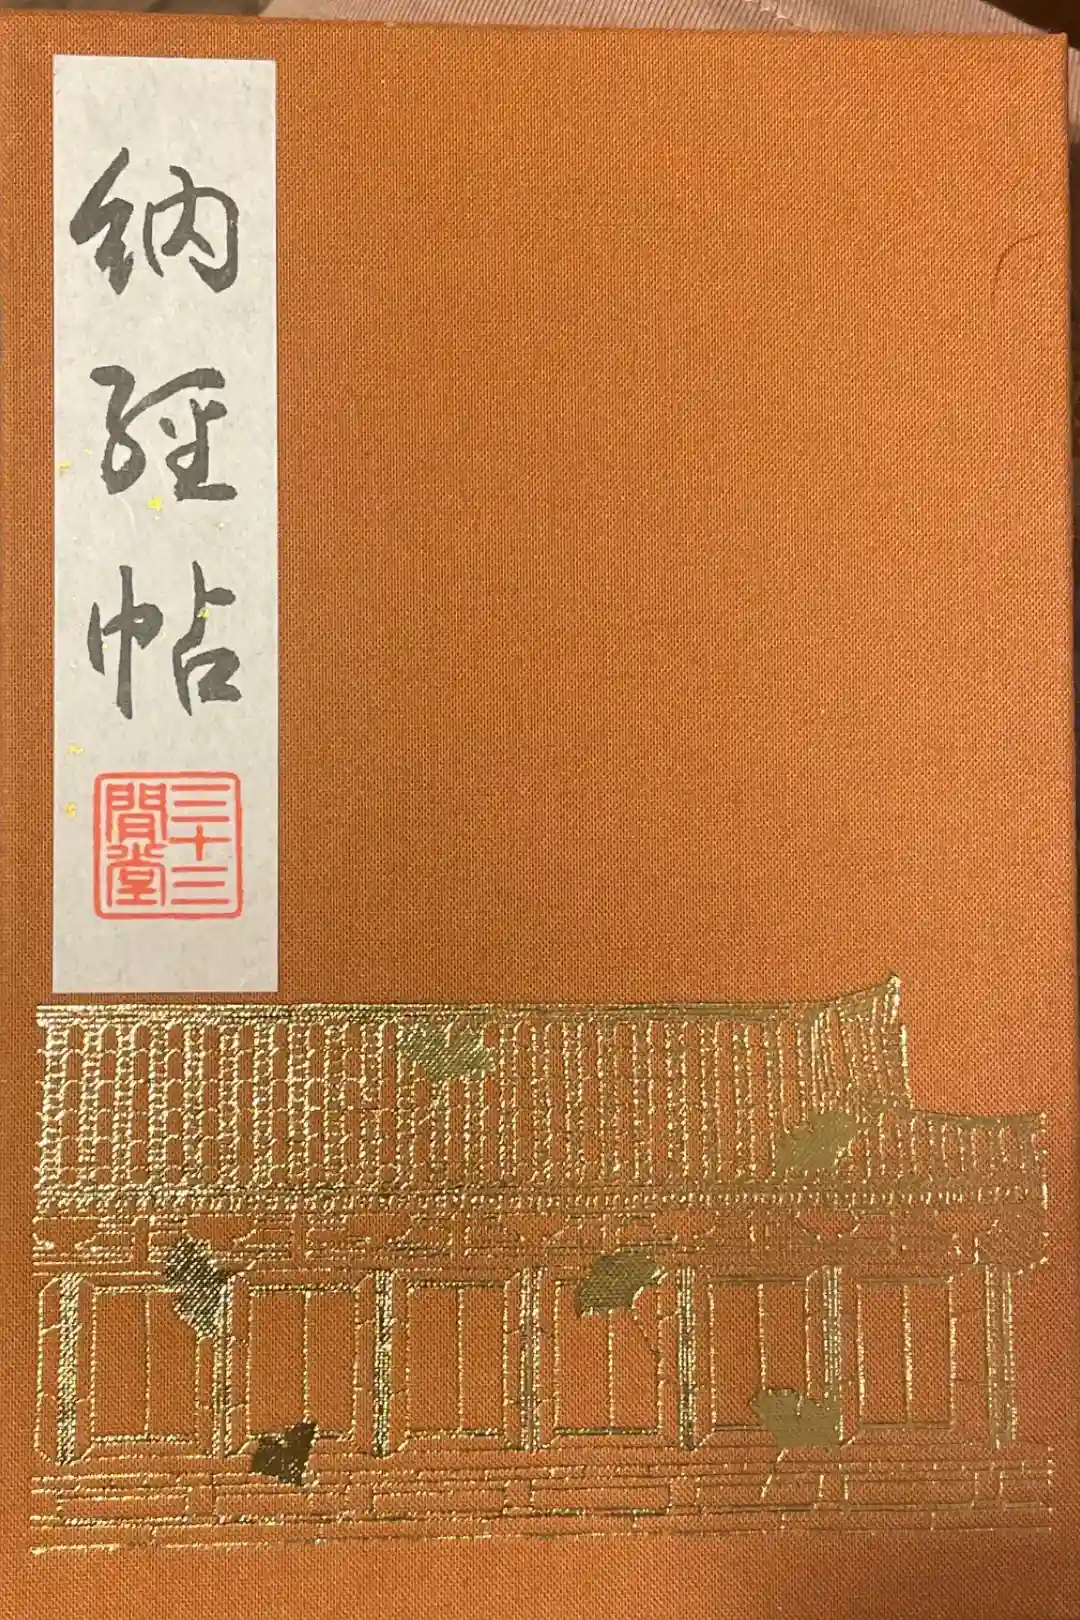 納經帖
三十三間堂